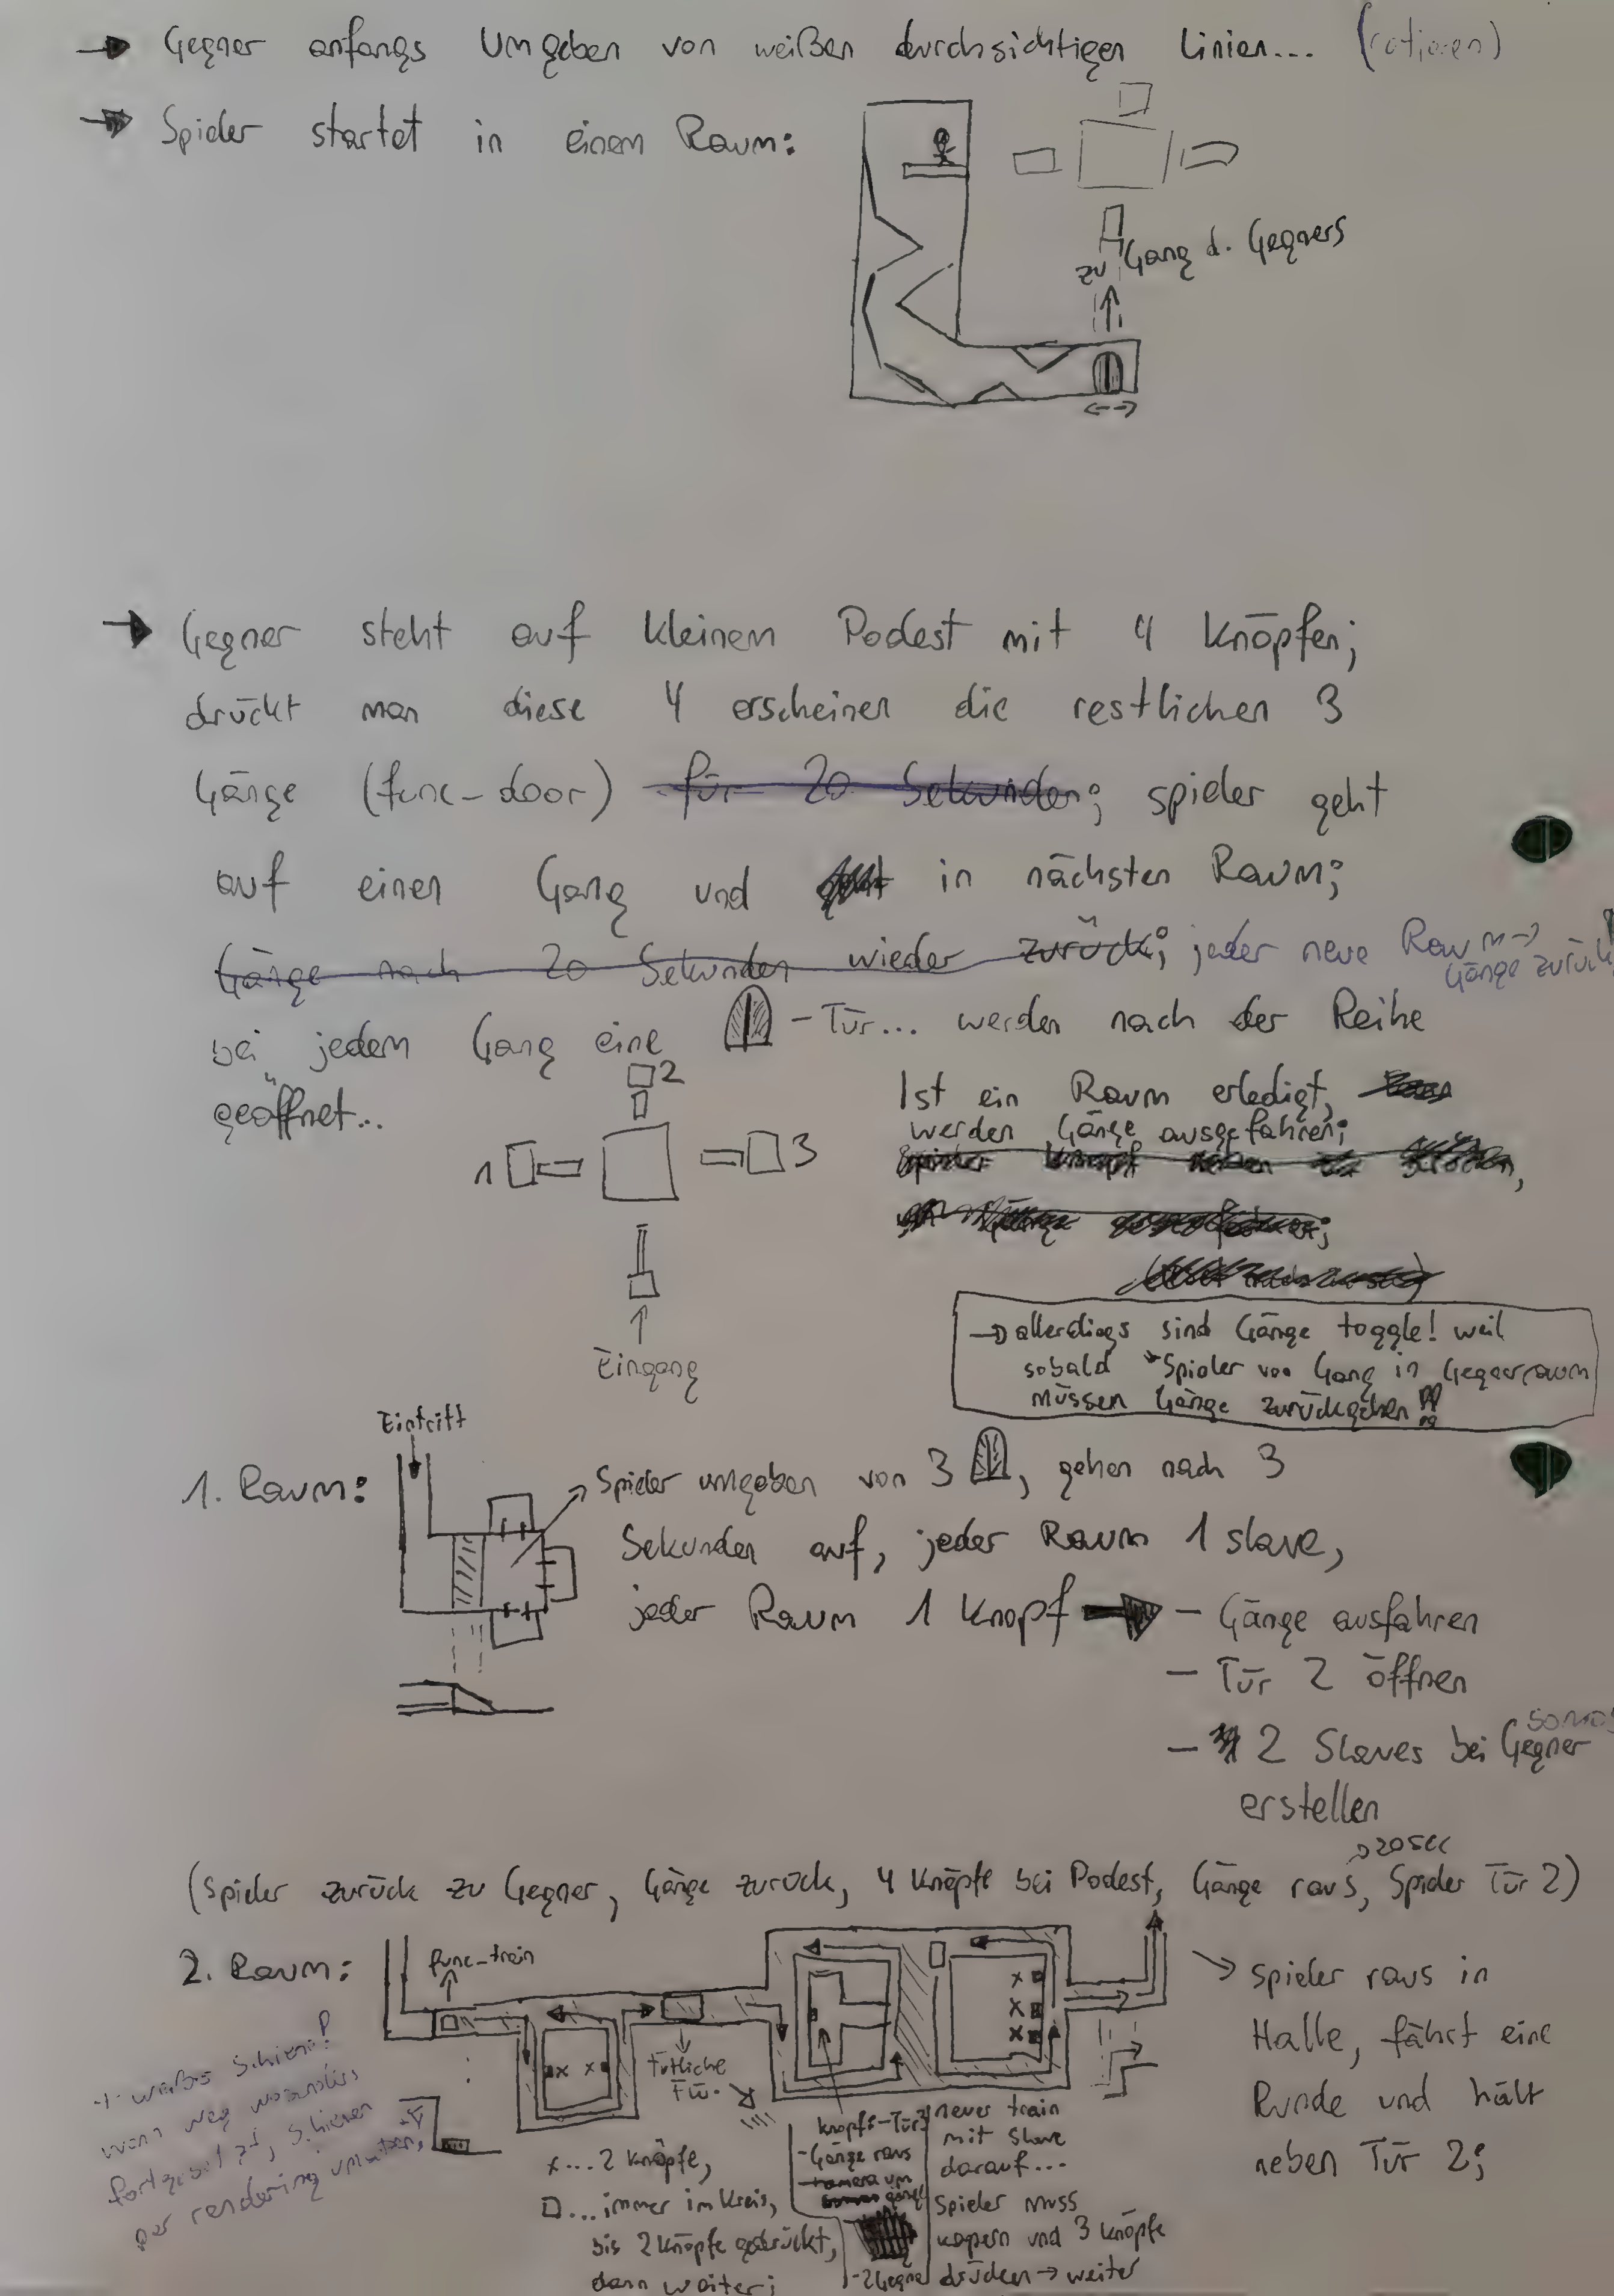 → Gegner anfangs umgeben von weißen durchsichtigen Linien... (rotieren)
→ Spieler startet in einem Raum:
zu Gang d. Gegners
→ Gegner steht auf kleinem Podest mit 4 Knöpfen;
drückt man diese 4 erscheinen die restlichen 3
Gänge (func-door) für 20 Sekunden; spieler geht
auf einen Gang und in nächsten Raum;
Gänge nach 20 Sekunden wieder zurück; jeder neue Raum →
Gänge zurück!
bei jedem Gang eine - Tür... werden nach der Reihe
geöffnet...
2
1
3
Eingang
Ist ein Raum erledigt,
werden Gänge ausgefahren;
→ allerdings sind Gänge toggle! weil
sobald Spieler von Gang in Gegnerraum
müssen Gänge zurückgehen!!
Eintritt
1. Raum:
Spieler umgeben von 3 , gehen nach 3
Sekunden auf, jeder Raum 1 slave,
jeder Raum 1 Knopf → - Gänge ausfahren
- Tür 2 öffnen
- 2 Slaves bei Gegner
erstellen
→ 20 sec
(Spieler zurück zu Gegner, Gänge zurück, 4 Knöpfe bei Podest, Gänge raus, Spieler Tür 2)
2. Raum:
func-train
x x
x
x
x
tötliche
Fw.
→ spieler raus in
Halle, fährt eine
Runde und hält
neben Tür 2;
x... 2 Knöpfe,
□... immer im Kreis,
bis 2 Knöpfe gedrückt,
dann weiter;
Knopf:-Tür 3
-Gänge raus
-2 Gegner
neuer train
mit Slave
darauf...
Spieler muss
kapern und 3 Knöpfe
drücken → weiter
weißes Schiene!
wenn weg woanders
fortgesetzt, Schienen
per rendering